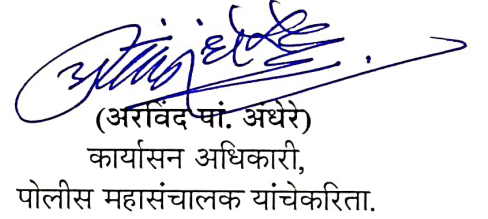 (अरविंद पां. अंधेरे)
कार्यासन अधिकारी,
पोलीस महासंचालक यांचेकरिता.